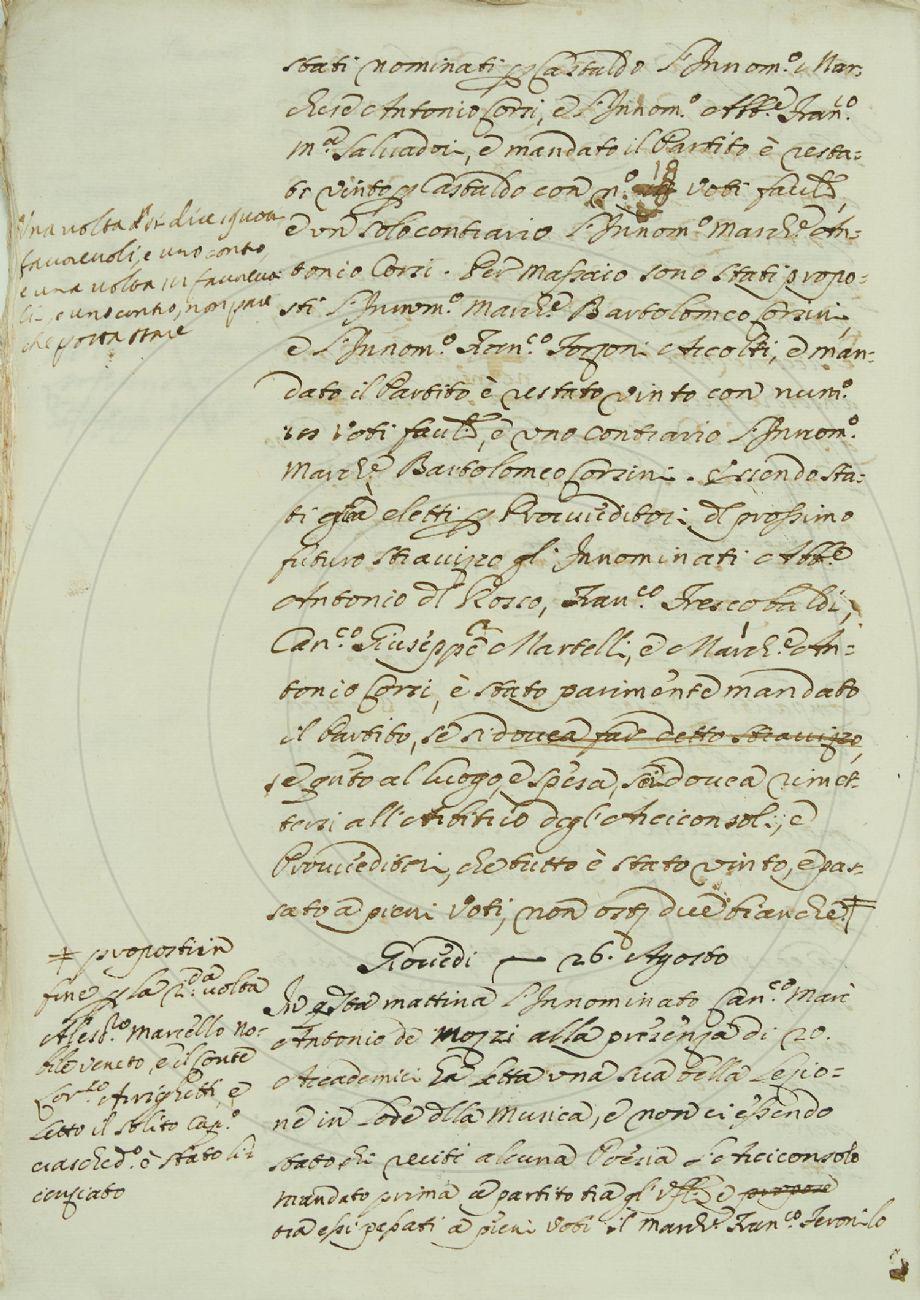 stati nominati p Castaldo l'Innom.º Mar-
chese Antonio Corsi, e l'Innom.º Abb.e Fran.co
M.a Salvadori, e mandato il Partito è resta-
to vinto p Castaldo con n.º 18 voti fav.li,
e un solo contrario l'Innom.º March.e An-
tonio Corsi. Per Massaio sono stati propo-
sti l'Innom.º March.e Bartolomeo Corsini,
e l'Innom.º Fran.co Forzoni Accolti, e man-
dato il Partito è restato vinto con num.º
voti fav.li, e uno contrario l'Innom.º
March.e Bartolomeo Corsini. Essendo sta-
ti già eletti p Provveditori dl prossimo
futuro stravizzo gl'Innominati Abb.e
Antonio dl Rosso, Fran.co Frescobaldi,
Can.co Giuseppe Martelli, e March.e An-
tonio Corsi, è stato parimente mandato
il Partito, se si dovea far detto stravizzo,
e q.to al luogo, e spesa, se si dovea rimet-
tersi all'Arbitrio degl'Arciconsoli, e
Provveditori, che tutto è stato vinto, e pas-
sato a pieni voti, non ost.i due bianche. ‡
Una volta si dice
favorevoli, e uno contro,
e una volta favorevo-
li, e uno contro, non pare
che possa stare
‡ propostisi in
fine p la 2.da volta
Aless.ro Marcello No-
bile veneto, e il Conte
Lor.zo Arrighetti, e
letto il solito Cap.º
ciasched.º è stato li-
cenziato
Giovedi — 26. Agosto
In q.sta mattina l'Innominato Can.co Marc'
Antonio de Mozzi alla presenza di 20.
Accademici ha letta una sua bella Lezio-
ne in lode dlla Musica, e non ci essendo
stato chi reciti alcuna Poesia l'Arciconsolo
mandato prima a partito tra gl'uff.li e propose
tra essi passati a pieni voti il March.e Fran.co Feroni lo